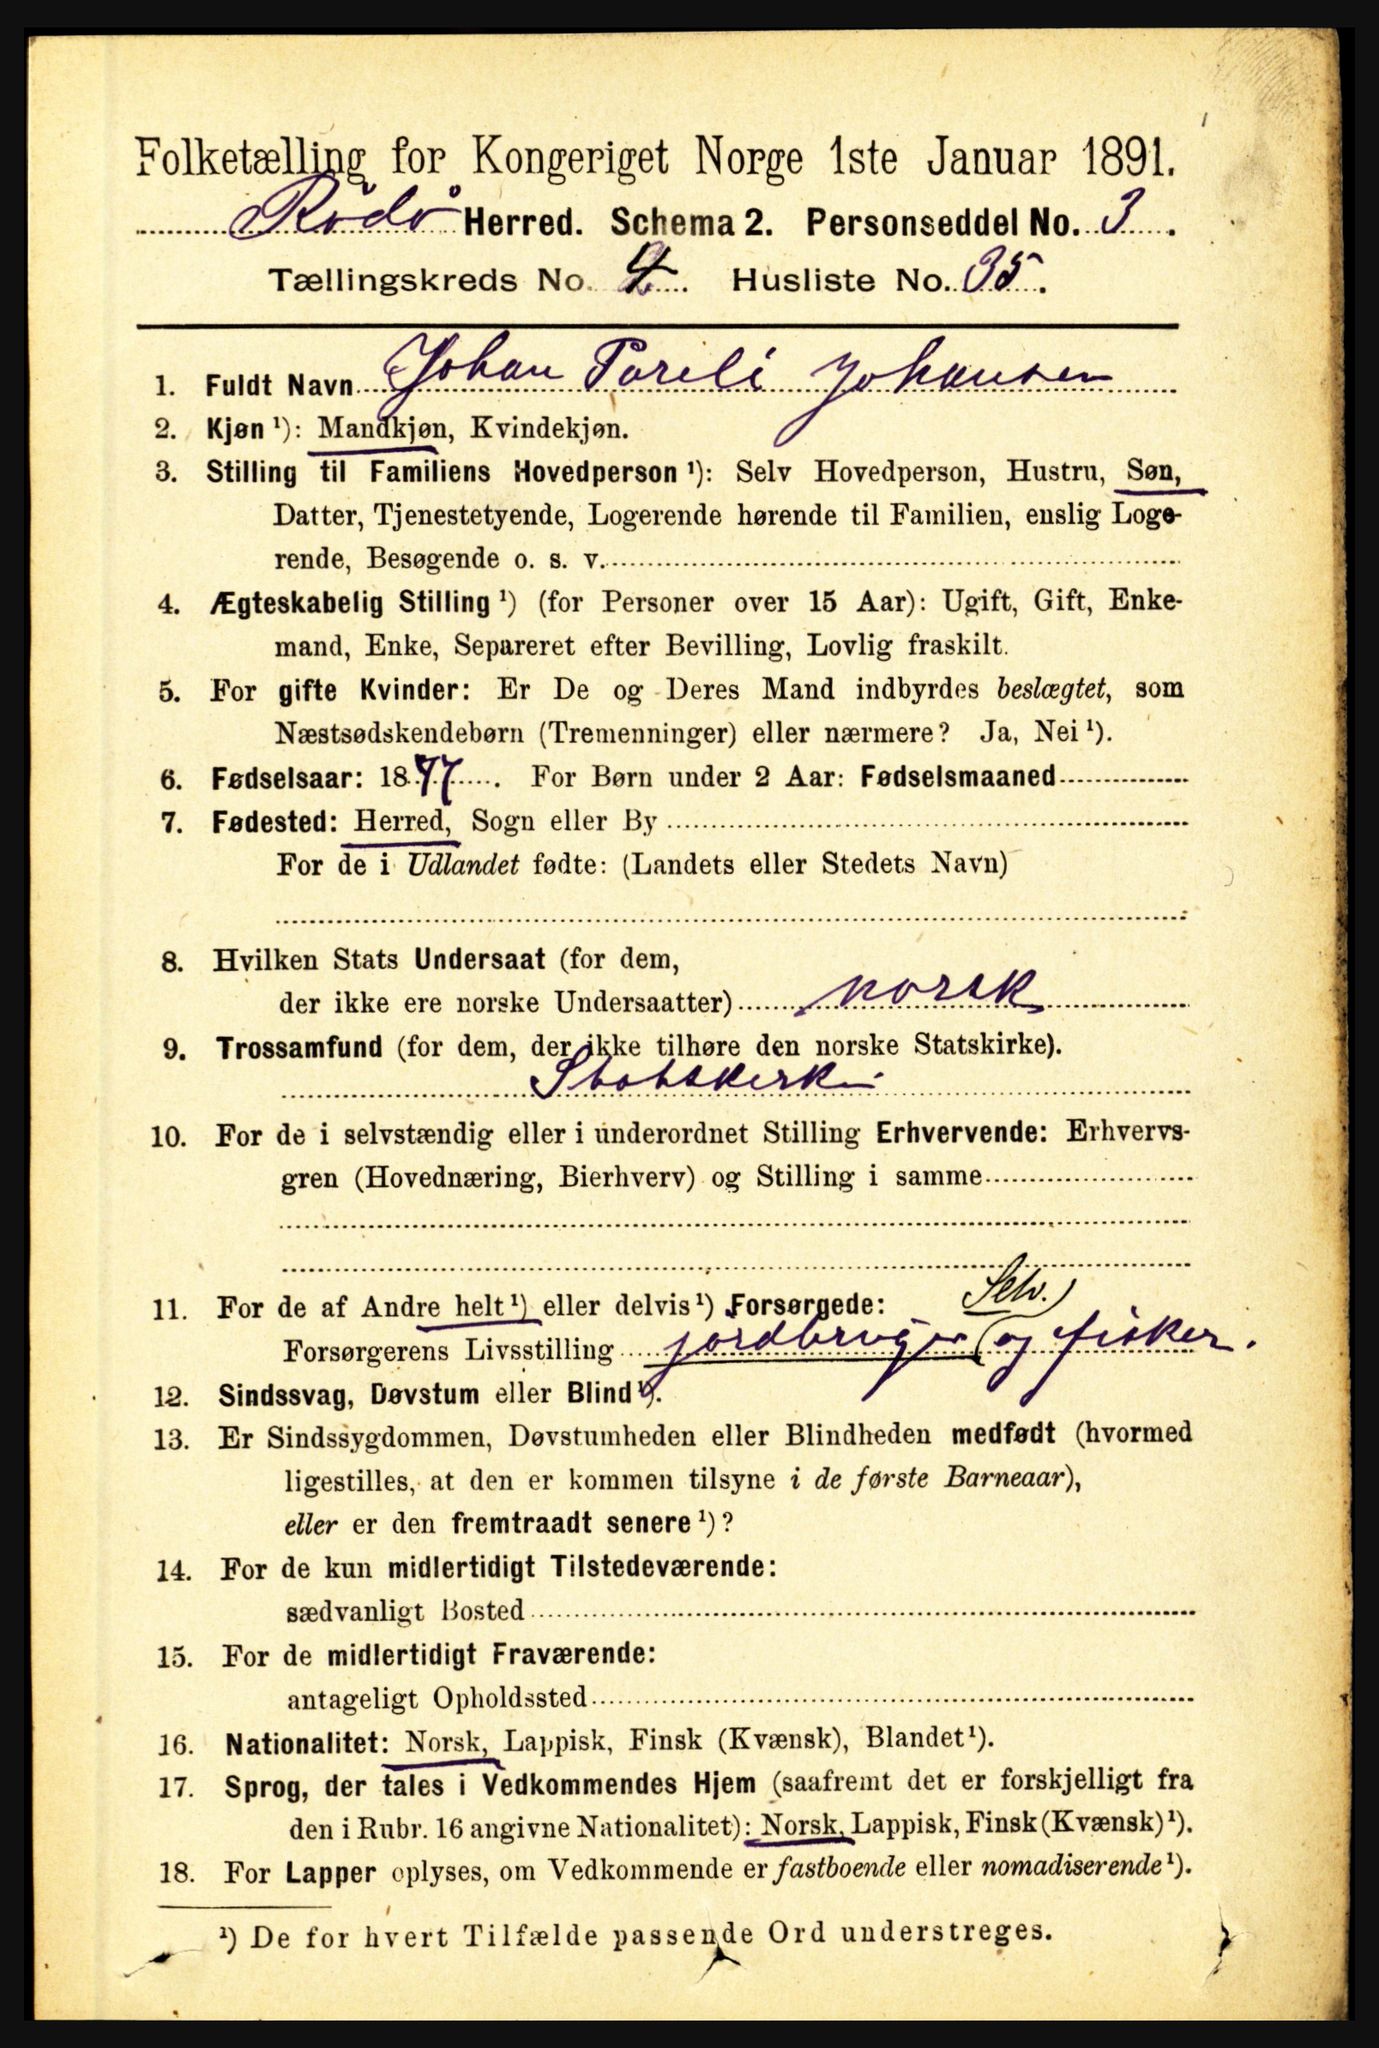 Folketælling for Kongeriget Norge 1ste Januar 1891.
Rödö Herred. Schema 2. Personseddel No. 3.
Tællingskreds No. 4. Husliste No. 35.
1. Fuldt Navn Johan Pareli Johansen
2. Kjøn ¹): Mandkjøn, Kvindekjøn.
3. Stilling til Familiens Hovedperson ¹): Selv Hovedperson, Hustru, Søn,
Datter, Tjenestetyende, Logerende hørende til Familien, enslig Loge-
rende, Besøgende o. s. v.
4. Ægteskabelig Stilling ¹) (for Personer over 15 Aar): Ugift, Gift, Enke-
mand, Enke, Separeret efter Bevilling, Lovlig fraskilt.
5. For gifte Kvinder: Er De og Deres Mand indbyrdes beslægtet, som
Næstsødskendebørn (Tremenninger) eller nærmere? Ja, Nei ¹).
6. Fødselsaar: 1877. For Børn under 2 Aar: Fødselsmaaned
7. Fødested: Herred, Sogn eller By
For de i Udlandet fødte: (Landets eller Stedets Navn)
8. Hvilken Stats Undersaat (for dem,
der ikke ere norske Undersaatter) norsk
9. Trossamfund (for dem, der ikke tilhøre den norske Statskirke).
Statskirke
10. For de i selvstændig eller i underordnet Stilling Erhvervende: Erhvervs-
gren (Hovednæring, Bierhverv) og Stilling i samme
Selv.
11. For de af Andre helt ¹) eller delvis ¹) Forsørgede:
Forsørgerens Livsstilling jordbruger og fisker.
12. Sindssvag, Døvstum eller Blind ¹).
13. Er Sindssygdommen, Døvstumheden eller Blindheden medfødt (hvormed
ligestilles, at den er kommen tilsyne i de første Barneaar),
eller er den fremtraadt senere ¹)?
14. For de kun midlertidigt Tilstedeværende:
sædvanligt Bosted
15. For de midlertidigt Fraværende:
antageligt Opholdssted
16. Nationalitet: Norsk, Lappisk, Finsk (Kvænsk), Blandet ¹).
17. Sprog, der tales i Vedkommendes Hjem (saafremt det er forskjelligt fra
den i Rubr. 16 angivne Nationalitet): Norsk, Lappisk, Finsk (Kvænsk) ¹).
18. For Lapper oplyses, om Vedkommende er fastboende eller nomadiserende ¹).
¹) De for hvert Tilfælde passende Ord understreges.